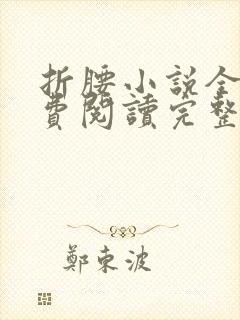 折腰小说全
費閱讀完整
鄭東波